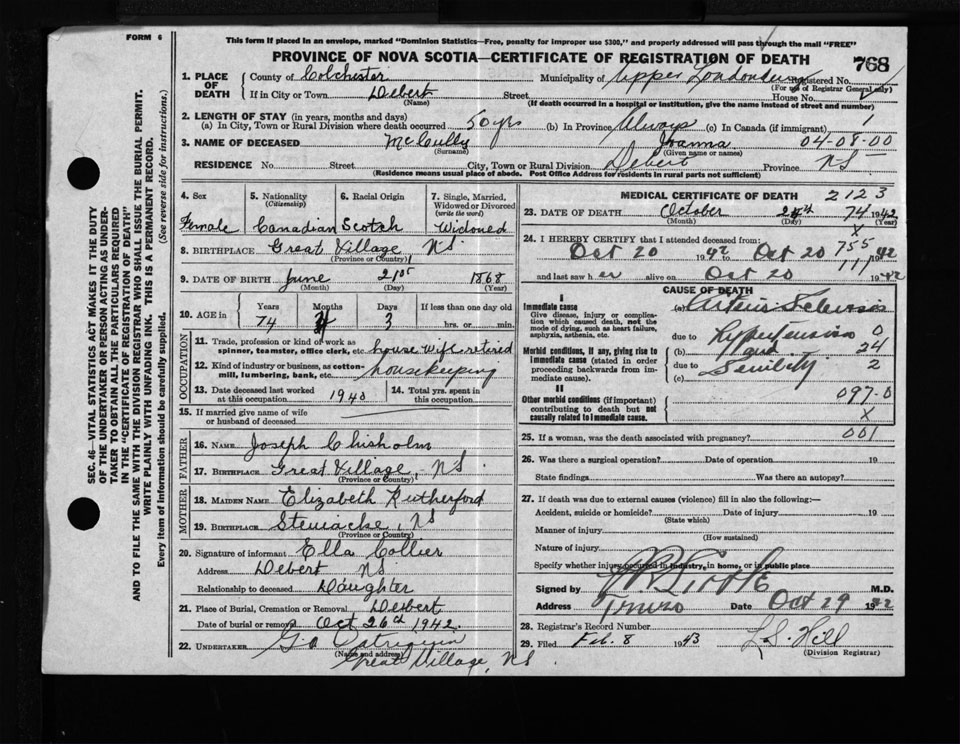 FORM 6
This form if placed in an envelope, marked "Dominion Statistics—Free, penalty for improper use $300," and properly addressed will pass through the mail "FREE"
PROVINCE OF NOVA SCOTIA—CERTIFICATE OF REGISTRATION OF DEATH
768
1. PLACE OF DEATH
County of Colchester Municipality of Upper Londonderry Registered No.
(For use of Registrar General only)
If in City or Town Debert Street House No.
(Name) (If death occurred in a hospital or institution, give the name instead of street and number)
2. LENGTH OF STAY (in years, months and days)
(a) In City, Town or Rural Division where death occurred 50 yrs (b) In Province Always (c) In Canada (if immigrant) 1
3. NAME OF DECEASED McCully Joanna 04-08-00
(Surname) (Given name or names)
RESIDENCE No. Street City, Town or Rural Division Debert Province NS
(Residence means usual place of abode. Post Office Address for residents in rural parts not sufficient)
4. Sex Female
5. Nationality (Citizenship) Canadian
6. Racial Origin Scotch
7. Single, Married, Widowed or Divorced (write the word) Widowed
8. BIRTHPLACE Great Village NS
(Province or Country)
9. DATE OF BIRTH June 21st 1868
(Month) (Day) (Year)
10. AGE in Years Months Days If less than one day old
74 3 hrs. or min.
OCCUPATION
11. Trade, profession or kind of work as spinner, teamster, office clerk, etc. house wife retired
12. Kind of industry or business, as cotton-mill, lumbering, bank, etc. housekeeping
13. Date deceased last worked at this occupation 1940
14. Total yrs. spent in this occupation
15. If married give name of wife or husband of deceased
FATHER
16. NAME Joseph Chisholm
17. BIRTHPLACE Great Village, NS
(Province or Country)
MOTHER
18. MAIDEN NAME Elizabeth Rutherford
19. BIRTHPLACE Stewiacke, NS
(Province or Country)
20. Signature of informant Ella Collier
Address Debert NS
Relationship to deceased Daughter
21. Place of Burial, Cremation or Removal Debert
Date of burial or removal Oct 26th 1942
22. UNDERTAKER
(Name and address)
Great Village, NS
MEDICAL CERTIFICATE OF DEATH 2123
23. DATE OF DEATH October 24th 74 1942
(Month) (Day) X
24. I HEREBY CERTIFY that I attended deceased from: 755
Oct 20 1942 to Oct 20 1942
111
and last saw her alive on Oct 20 1942
CAUSE OF DEATH
I
Immediate cause
Give disease, injury or complication which caused death, not the mode of dying, such as heart failure, asphyxia, asthenia, etc.
(a)
due to Hypertension 0
Morbid conditions, if any, giving rise to immediate cause (stated in order proceeding backwards from immediate cause).
(b) and 24
due to Senility 2
(c)
II
Other morbid conditions (if important) contributing to death but not causally related to immediate cause.
097-0
X
25. If a woman, was the death associated with pregnancy? 001
26. Was there a surgical operation? Date of operation 19
State findings Was there an autopsy?
27. If death was due to external causes (violence) fill in also the following:—
Accident, suicide or homicide? Date of injury 19
(State which)
Manner of injury
(How sustained)
Nature of injury
Specify whether injury occurred in industry, in home, or in public place
Signed by M.D.
Address Truro Date Oct 29 1942
28. Registrar's Record Number
29. Filed Feb. 8 1943 L. S. Hill
(Division Registrar)
SEC. 46—VITAL STATISTICS ACT MAKES IT THE DUTY
OF THE UNDERTAKER OR PERSON ACTING AS UNDER-
TAKER TO OBTAIN ALL THE PARTICULARS REQUIRED
IN THE "CERTIFICATE OF REGISTRATION OF DEATH"
AND TO FILE THE SAME WITH THE DIVISION REGISTRAR WHO SHALL ISSUE THE BURIAL PERMIT.
WRITE PLAINLY WITH UNFADING INK. THIS IS A PERMANENT RECORD.
Every item of information should be carefully supplied. (See reverse side for instructions.)